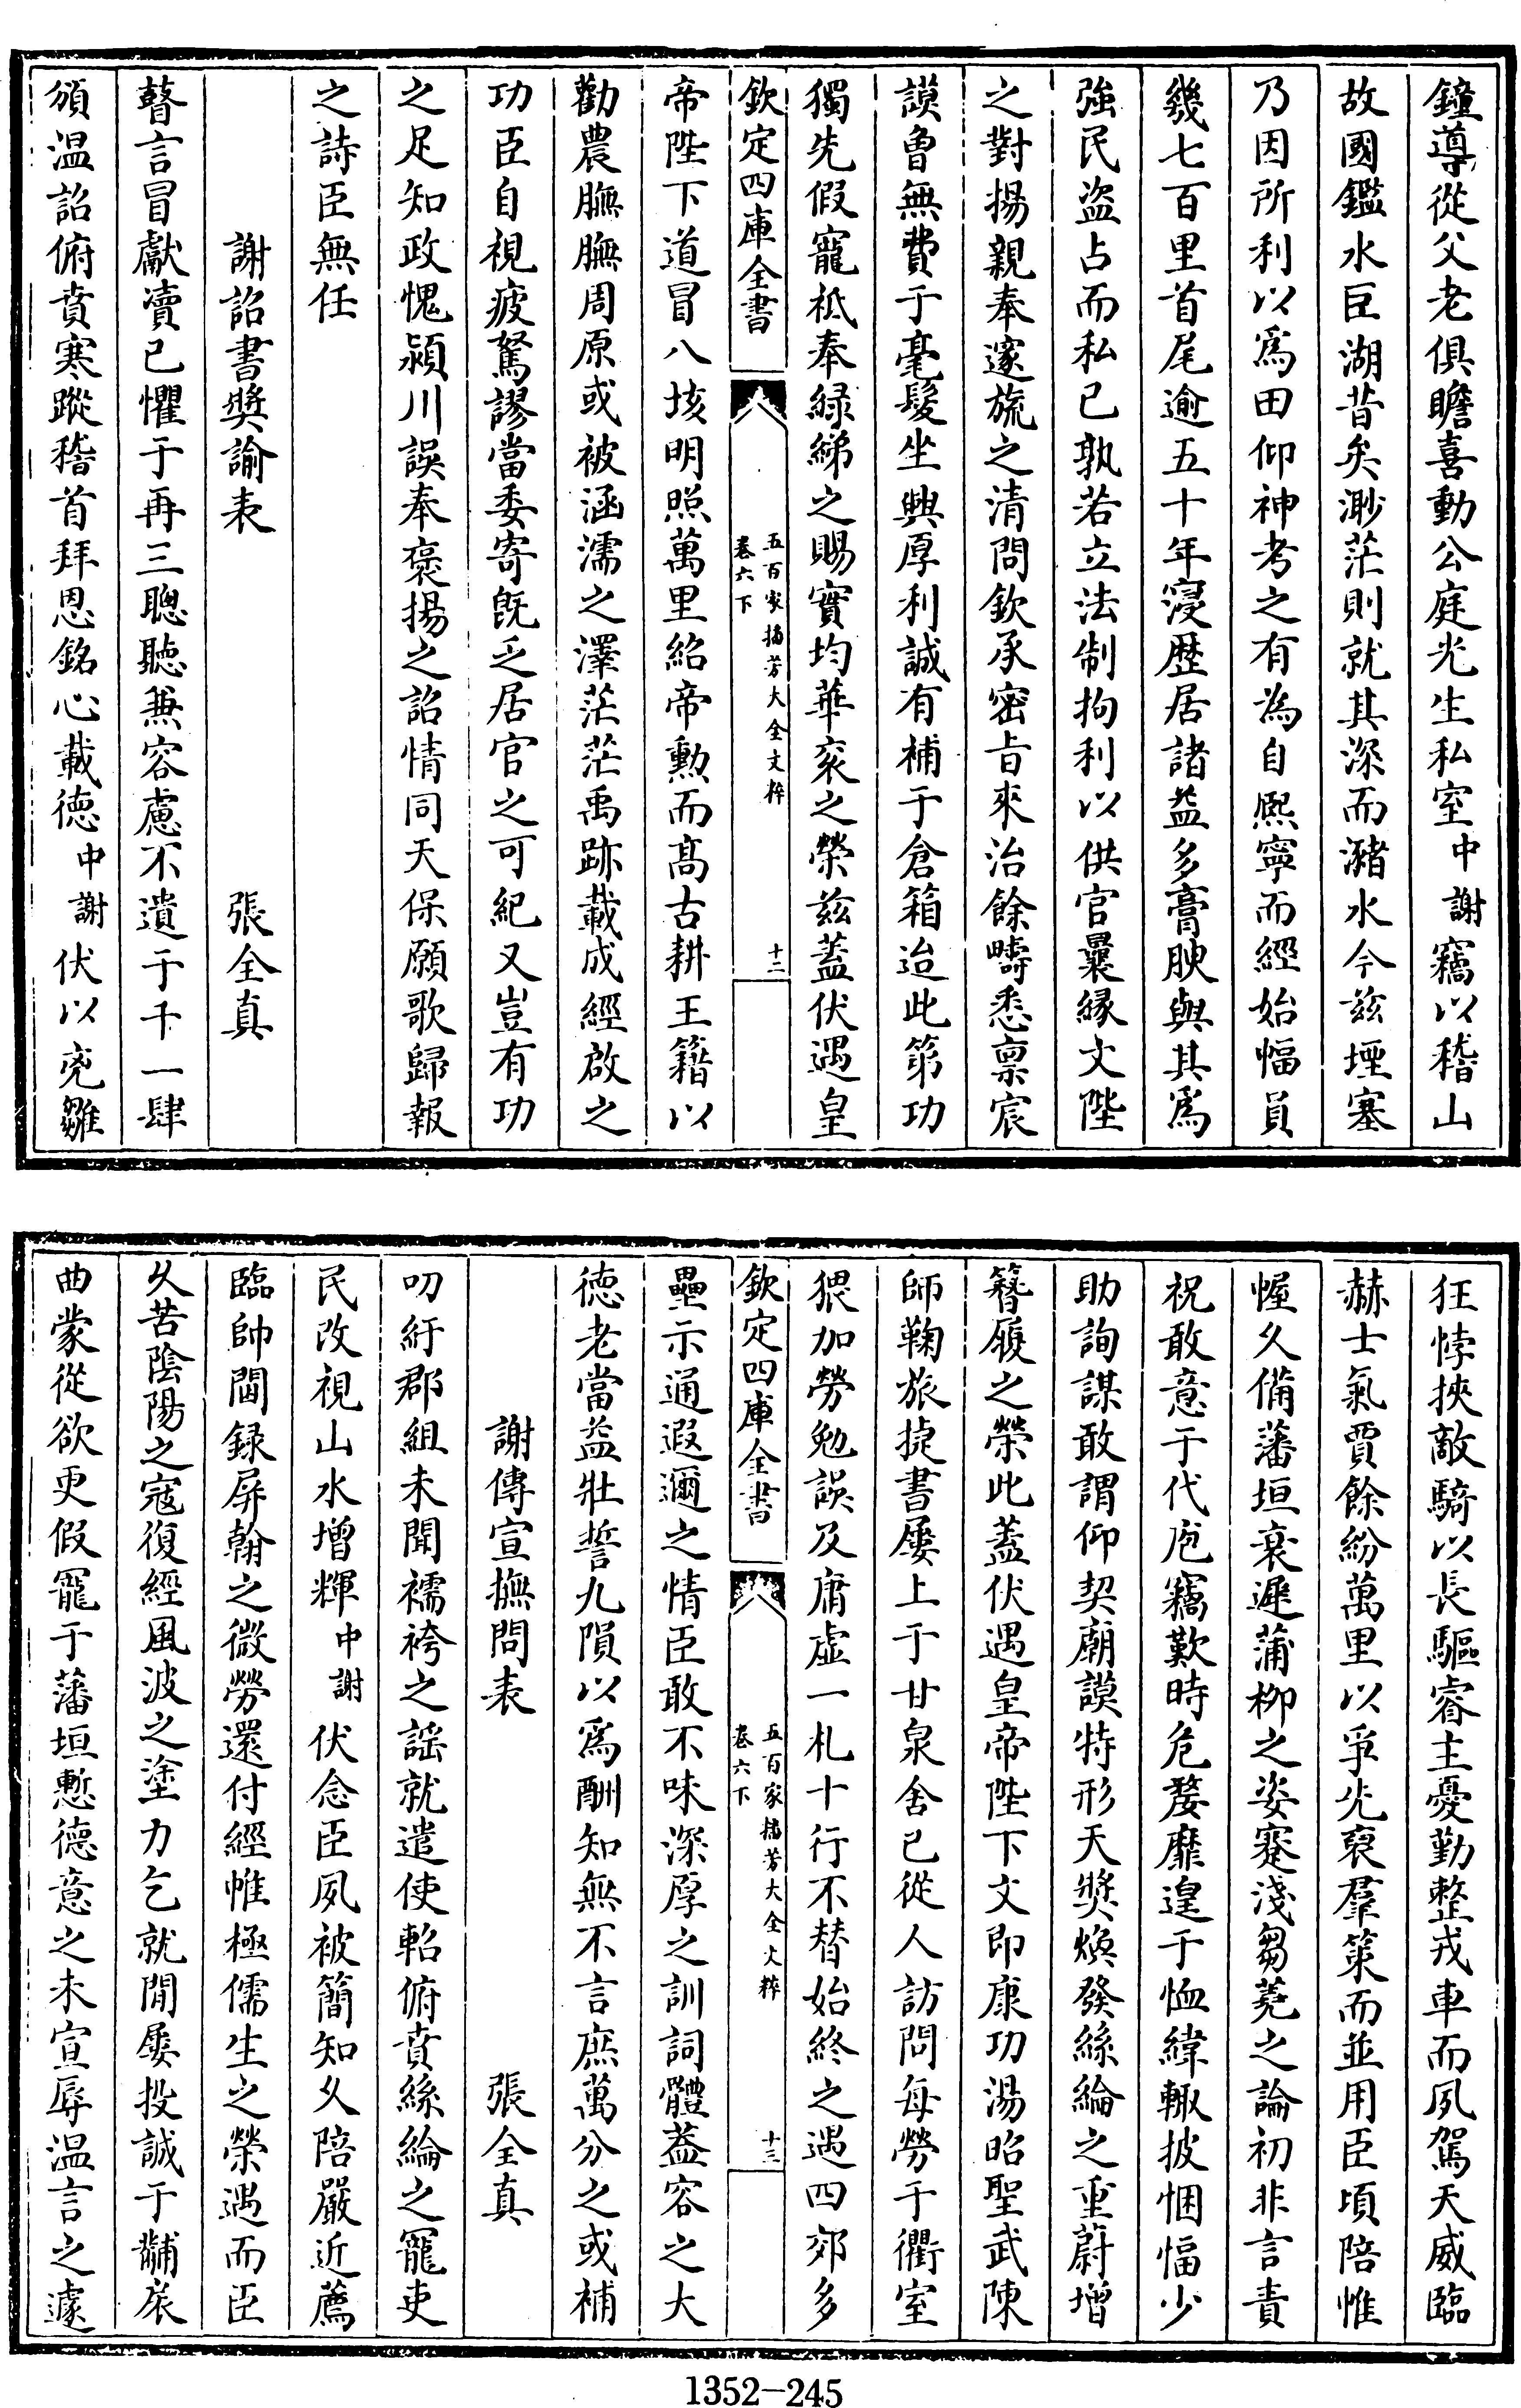 鐘導從父老俱瞻喜動公庭光生私室中謝竊以稽山
故國鑑水巨湖昔矣渺茫則就其深而瀦水今兹堙塞
乃因所利以爲田仰神考之有為自熈寧而經始幅員
幾七百里首尾逾五十年寖歴居諸益多膏腴與其爲
強民盜占而私已孰若立法制拘利以供官曩縁文陛
之對揚親奉邃旒之清問欽承密㫖來治餘疇悉禀宸
謨曽無費于毫髮坐興厚利誠有補于倉箱迨此第功
獨先假寵祗奉綠綈之賜實均華衮之榮兹蓋伏遇皇
欽定四庫全書
五百家播芳大全文粹
卷六下
十二
帝陛下道冒八垓明照萬里紹帝勲而髙古耕王籍以
勸農膴膴周原或被涵濡之澤茫茫禹跡載成經啟之
功臣自視疲駑謬當委寄既乏居官之可紀又豈有功
之足知政愧潁川誤奉褒揚之詔情同天保願歌歸報
之詩臣無任
謝詔書獎諭表
張全真
瞽言冒獻凟已懼于再三聰聽兼容慮不遺于千一肆
頒温詔俯賁寒蹤稽首拜恩銘心載徳中謝伏以兇雛
狂悖挾敵騎以長驅睿主憂勤整戎車而夙駕天威臨
赫士氣賈餘紛萬里以爭先裒羣策而並用臣頃陪帷
幄久備藩垣衰遲蒲栁之姿蹇淺芻蕘之論初非言責
祝敢意于代庖竊歎時危嫠靡遑于恤緯輙披悃愊少
助詢謀敢謂仰契廟謨特形天奬煥發絲綸之重蔚增
簪履之榮此蓋伏遇皇帝陛下文即康功湯昭聖武陳
師鞠旅捷書屢上于甘泉舍已從人訪問每勞于衢室
猥加勞勉誤及庸虚一札十行不替始終之遇四郊多
欽定四庫全書
五百家播芳大全文粹
卷六下
十三
壘示通遐邇之情臣敢不味深厚之訓詞體葢容之大
徳老當益壯誓九隕以爲酬知無不言庶萬分之或補
謝傳宣撫問表
張全真
叨紆郡組未聞襦袴之謡就遣使軺俯賁絲綸之寵吏
民改視山水增輝中謝伏念臣夙被簡知久陪嚴近薦
臨帥閫録屏翰之微勞還付經帷極儒生之榮遇而臣
久苦陰陽之寇復經風波之塗力乞就閒屢投誠于黼扆
曲蒙從欲更假寵于藩垣慙德意之未宣辱温言之遽
1352-245